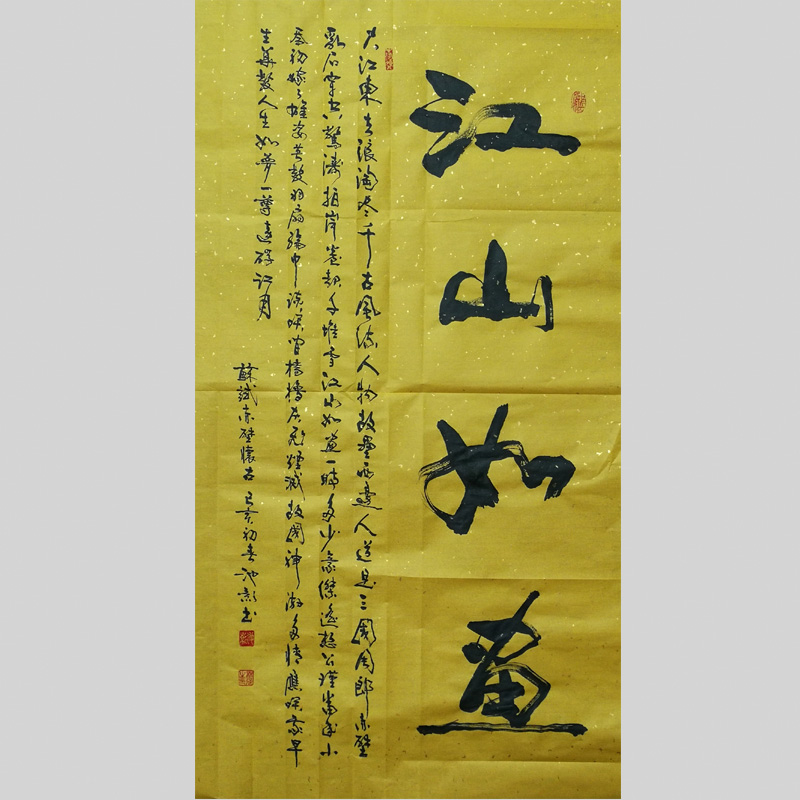 江山如畫
大江東去浪淘盡千古風流人物故壘西邊人道是三國周郎赤壁
亂石穿空驚濤拍岸卷起千堆雪江山如畫一時多少豪傑遙想公瑾當年小
喬初嫁了雄姿英發羽扇綸巾談笑間檣櫓灰飛煙滅故國神游多情應笑我早
生華髮人生如夢一尊還酹江月
蘇軾赤壁懷古 己亥初春池影書